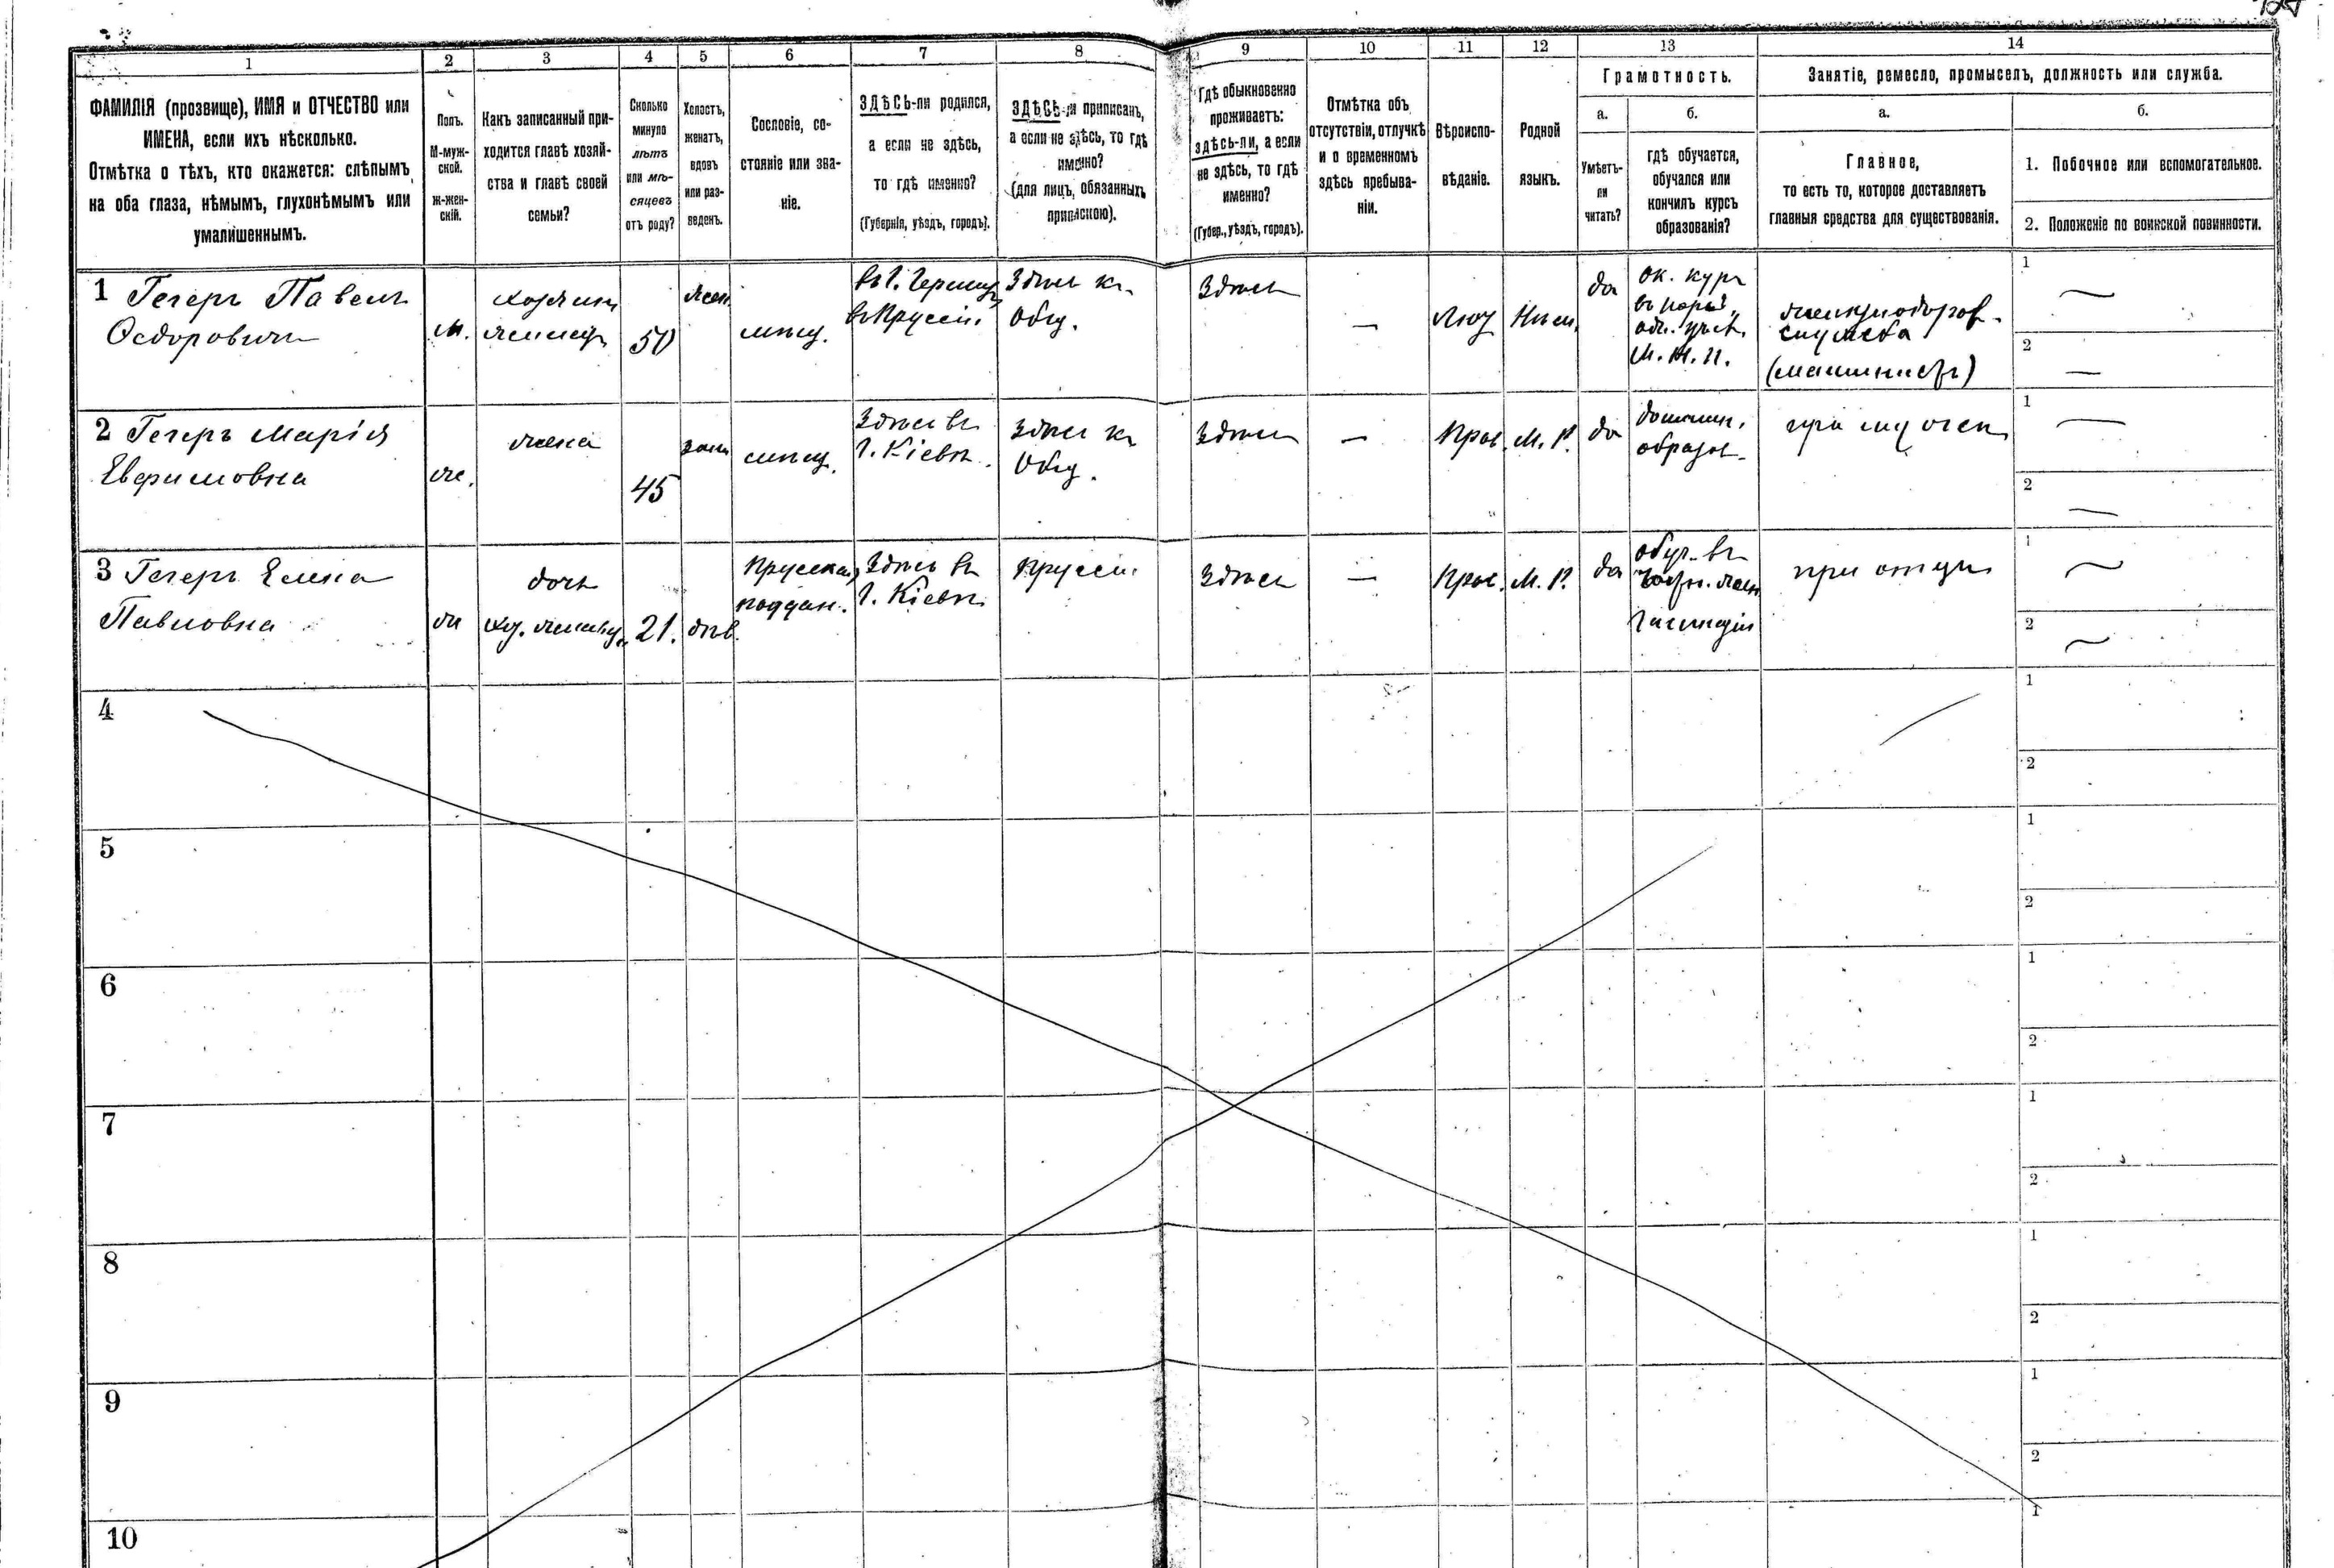 1
2
3
4
5
6
7
8
9
10
11
12
13
14
ФАМИЛІЯ (прозвище), ИМЯ и ОТЧЕСТВО или
ИМЕНА, если ихъ нѣсколько.
Отмѣтка о тѣхъ, кто окажется: слѣпымъ
на оба глаза, нѣмымъ, глухонѣмымъ или
умалишеннымъ.
Полъ.
М-муж-
ской.
Ж-жен-
скій.
Какъ записанный при-
ходится главѣ хозяй-
ства и главѣ своей
семьи?
Сколько
минуло
лѣтъ
или мѣ-
сяцевъ
отъ роду?
Холостъ,
женатъ,
вдовъ
или раз-
веденъ.
Сословіе, со-
стояніе или зва-
ніе.
ЗДѢСЬ-ли родился,
а если не здѣсь,
то гдѣ именно?
(Губернія, уѣздъ, городъ).
ЗДѢСЬ-ли приписанъ,
а если не здѣсь, то гдѣ
именно?
(для лицъ, обязанныхъ
припискою).
Гдѣ обыкновенно
проживаетъ:
здѣсь-ли, а если
не здѣсь, то гдѣ
именно?
(Губер., уѣздъ, городъ).
Отмѣтка объ
отсутствіи, отлучкѣ
и о временномъ
здѣсь пребыва-
ніи.
Вѣроиспо-
вѣданіе.
Родной
языкъ.
Грамотность.
а.
Умѣетъ-
ли
читать?
б.
гдѣ обучается,
обучался или
кончилъ курсъ
образованія?
Занятіе, ремесло, промыселъ, должность или служба.
а.
Главное,
то есть то, которое доставляетъ
главныя средства для существованія.
б.
1. Побочное или вспомогательное.
2. Положеніе по воинской повинности.
1 Гегеръ Павелъ
Ѳедоровичъ
м.
хозяинъ
50
жен
мѣщ.
въ Пруссіи
Здѣсь къ
Общ.
Здѣсь
—
Лют
Нѣм.
да
ок. курс
М. Н. П.
желѣзнодорож.
служба
(машинистъ)
1 —
2 —
2 Гегеръ Марія
Евфимовна
ж.
жена
45
зам
мѣщ.
Здѣсь въ
г. Кіевѣ.
Здѣсь къ
Общ.
Здѣсь
—
Прав.
М. Р.
да
домашн.
образов.
при мужѣ
1 —
2 —
3 Гегеръ Елена
Павловна
ж
дочь
21.
дѣв.
Прусская
поддан.
Здѣсь въ
г. Кіевѣ
Пруссіи
Здѣсь
—
Прав.
М. Р.
да
обуч. въ
жен
гимназіи
при отцѣ
1 —
2 —
4
1
2
5
1
2
6
1
2
7
1
2
8
1
2
9
1
2
10
1